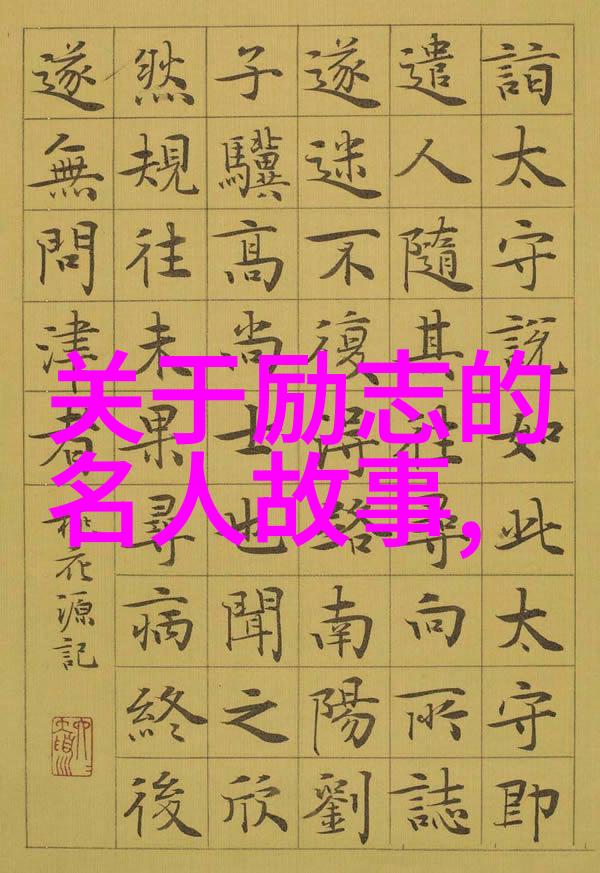 詣太守說如此太守即
遣人隨其往尋向所誌
遂迷不復得路南陽劉
子驥高尚士也聞之欣
然規往未果尋病終後
遂無問津者
桃花源記
关于励志的
名人故事,